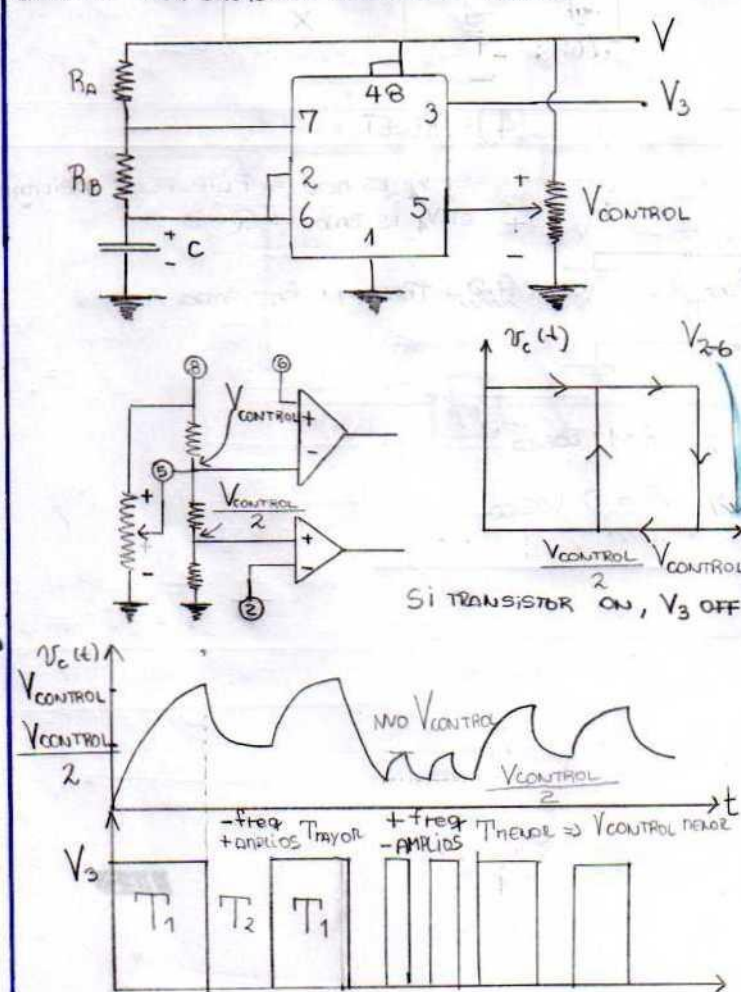 V
R_A
4 8
3
V_3
7
R_B
2
6
5
+
V_CONTROL
1
-
+ C
-
8
6
V_CONTROL
+
-
5
+
V_CONTROL
2
+
-
2
+
-
v_c (t)
V_2-6
V_CONTROL
2
V_CONTROL
Si TRANSISTOR ON, V_3 OFF
v_c (t)
V_CONTROL
V_CONTROL
2
NVO V_CONTROL
V_CONTROL
2
t
-freq
+AMPLIOS T MAYOR
+freq
-AMPLIOS
T MENOR => V_CONTROL MENOR
V_3
T_1
T_2
T_1